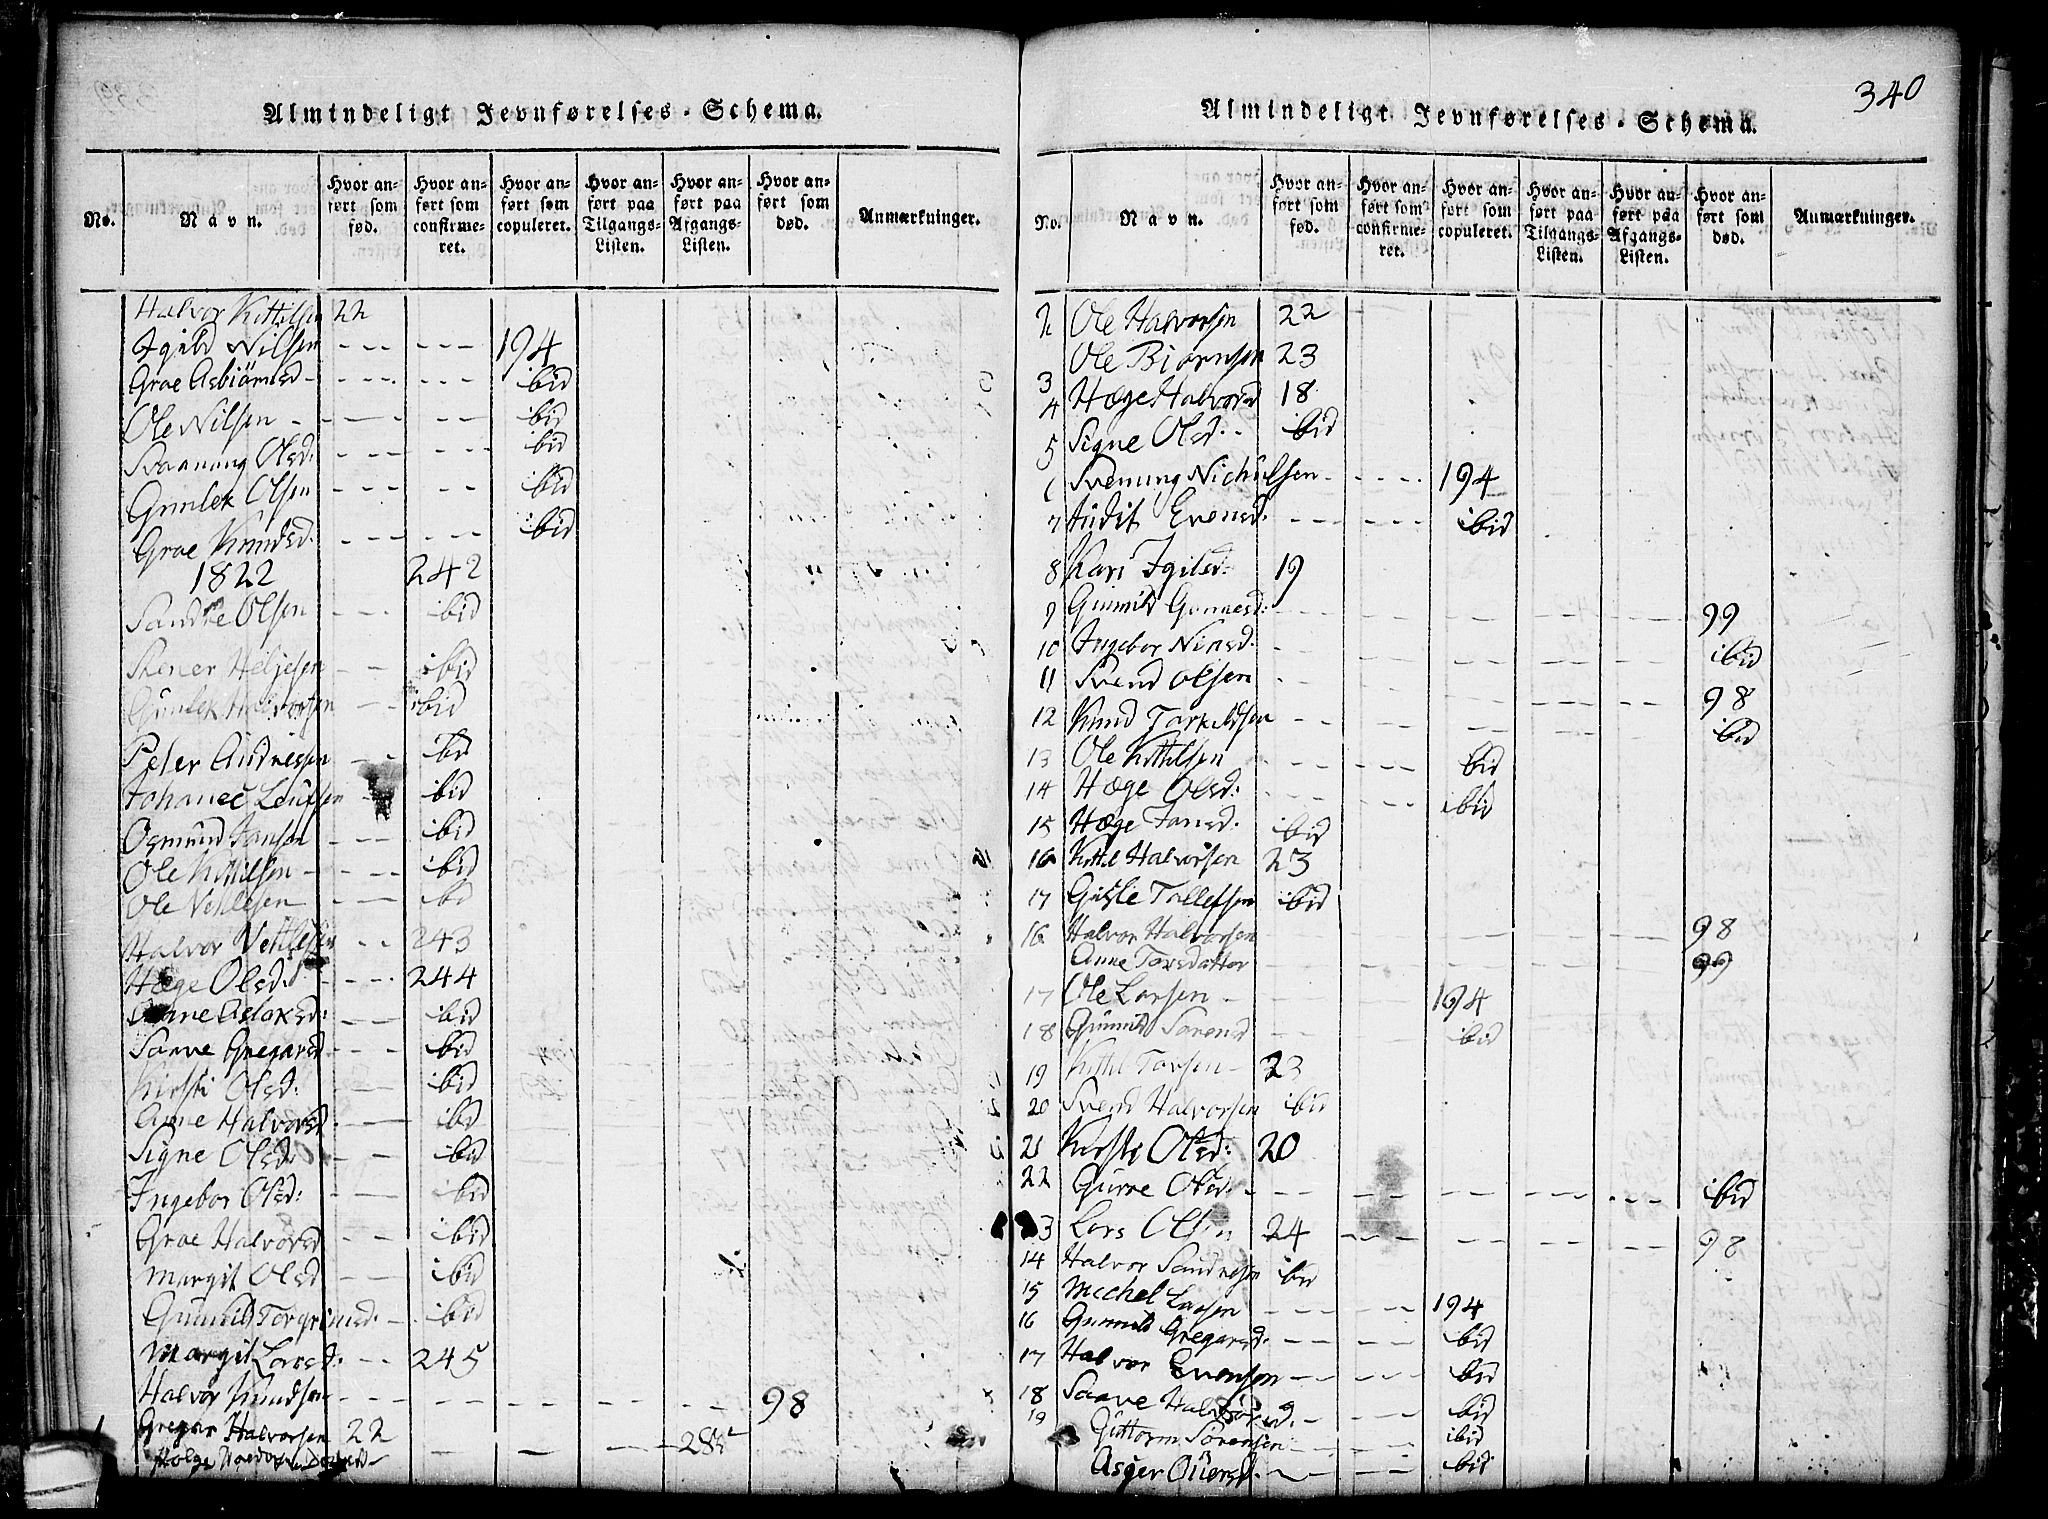 Almindeligt Jevnførelses-Schema.
No.
Navn.
Hvor an-
ført som
fød.
Hvor an-
ført som
confirme-
ret.
Hvor an-
ført som
copuleret.
Hvor an-
ført paa
Tilgangs-
Listen.
Hvor an-
ført paa
Afgangs-
Listen.
Hvor an-
ført som
død.
Anmærkninger.
Halvor Kittilsen 22
Igild Nilsen - - - - - - 194
Groe Asbiörnsd - - - - - - - ibid
Ole Nilsen - - - - - - ibid
Svaanung Olsd: - - - - - - ibid
Gunlek Olsen - - - - - - ibid
Groe Knudsd. - - - - - - ibid
1822 242
Sandre Olsen - - - ibid
Stener Heljesen - - ibid
Gunlek Halvorsen - - ibid
Peter Andressen - - ibid
Johanes Leufsen - ibid
Osmund Jansen - - - ibid
Ole Kittilsen - - - - ibid
Ole Vetlesen - - - ibid
Halvor Vetlesen - - 243
Hæge Olsd. - - - 244
Anne Aslaksd: - - ibid
Saave Gregarsd - - - ibid
Kirsti Olsd: - - ibid
Anne Halvorsd. - - ibid
Signe Olsd - - ibid
Ingebor Olsd: - - ibid
Groe Halvorsd - - ibid
Margit Olsd - - ibid
Gunnild Torgrimsd. - . ibid
Margit Larsd. - - 245
Halvor Knudsen - - - - - - - - - 98
Gregar Halvorsen 22 285

340
Almindeligt Jevnførelses-Schema.
No.
Navn.
Hvor an-
ført som
fød.
Hvor an-
ført som
confirme-
ret.
Hvor an-
ført som
copuleret.
Hvor an-
ført paa
Tilgangs-
Listen.
Hvor an-
ført paa
Afgangs-
Listen.
Hvor an-
ført som
død.
Anmærkninger.
2 Ole Halvorsen 22
3 Ole Biörnsen 23
4 Hæge Halvorsd 18
5 Signe Olsd. - ibid
6 Svenung Nichulsen - - - - - 194
7 Audit Evensd. - - - - - - ibid
8 Kari Igilsd: 19
9 Gunnild Gunnesd: - - - - - - - - - 99
10 Ingebor Nirisd. - - - - - - - - - ibid
11 Svend Olsen - - - - - - - - - 98
12 Knud Torkildsen - - - - - - - - - ibid
13 Ole Kittilsen - - - - - ibid
14 Hæge Olsd: - - - - - - ibid
15 Hæge Jansd. ibid
16 Kittil Halvorsen 23
17 Gisle Tollefsen ibid
16 Halvor Halvorsen - - - - - - - - - 98
Anne Torsdatter - - - - - - - - - 99
17 Ole Larsen - - - 194
18 Gunnild Sorensd - - - - ibid
19 Kittil Torsen - 23
20 Svend Halvorsen ibid
21 Kirsti Olsd: 20
22 Gurroe Olsd. - - - - - - - - - ibid
3 Lars Olsen 24 - - - - - - - - 98
14 Halvor Sandresen ibid
15 Michel Larsen - - - - - - 194
16 Gunnild Gregarsd. - - - - - ibid
17 Halvor Evensen - - - - - ibid
18 Saave Halvorsd. - - - - ibid
19 Guttorm Sorensen - - - - ibid
Asger Oliersd. - - - - ibid